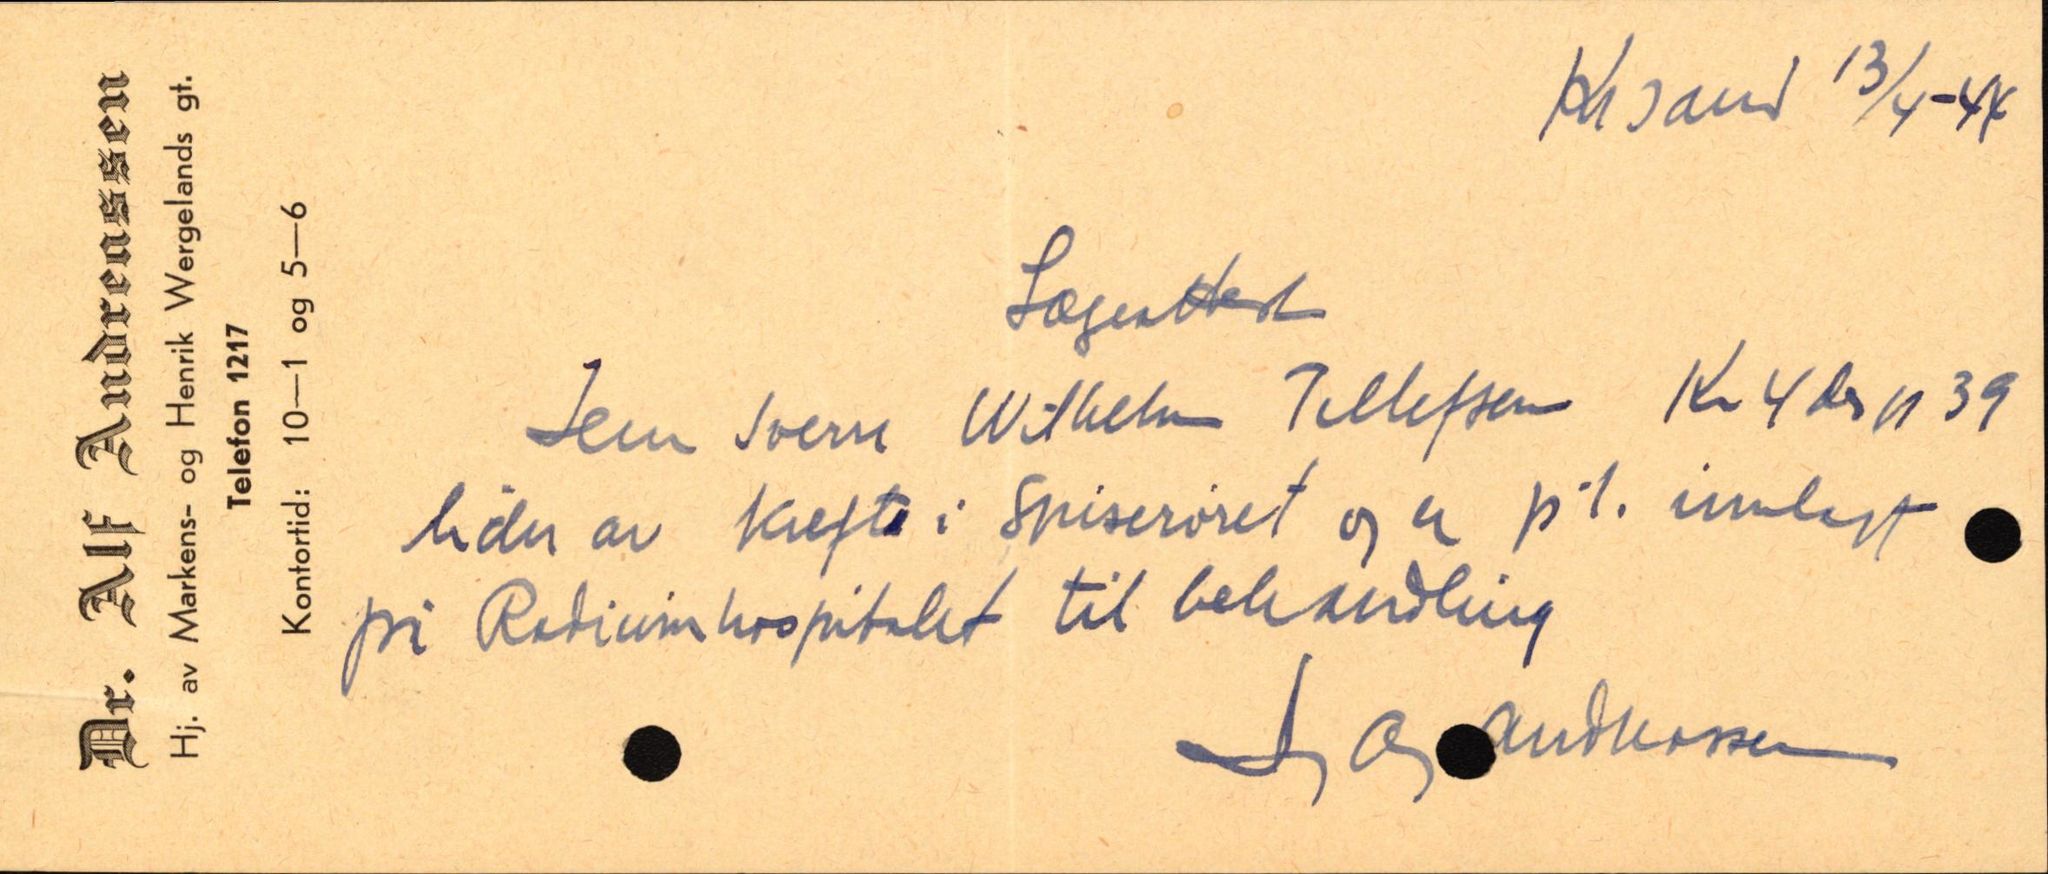 Dr. Alf Andreassen
Hj. av Markens- og Henrik Wergelands gt.
Telefon 1217
Kontortid: 10—1 og 5—6
Kr sand 13/4-44
Lægeattest
Wilhelm Tellefsen Kr 4 39
lider av kreft i Spiserøret og er p.t. innlagt
på Radiumhospitalet til behandling
Andreassen